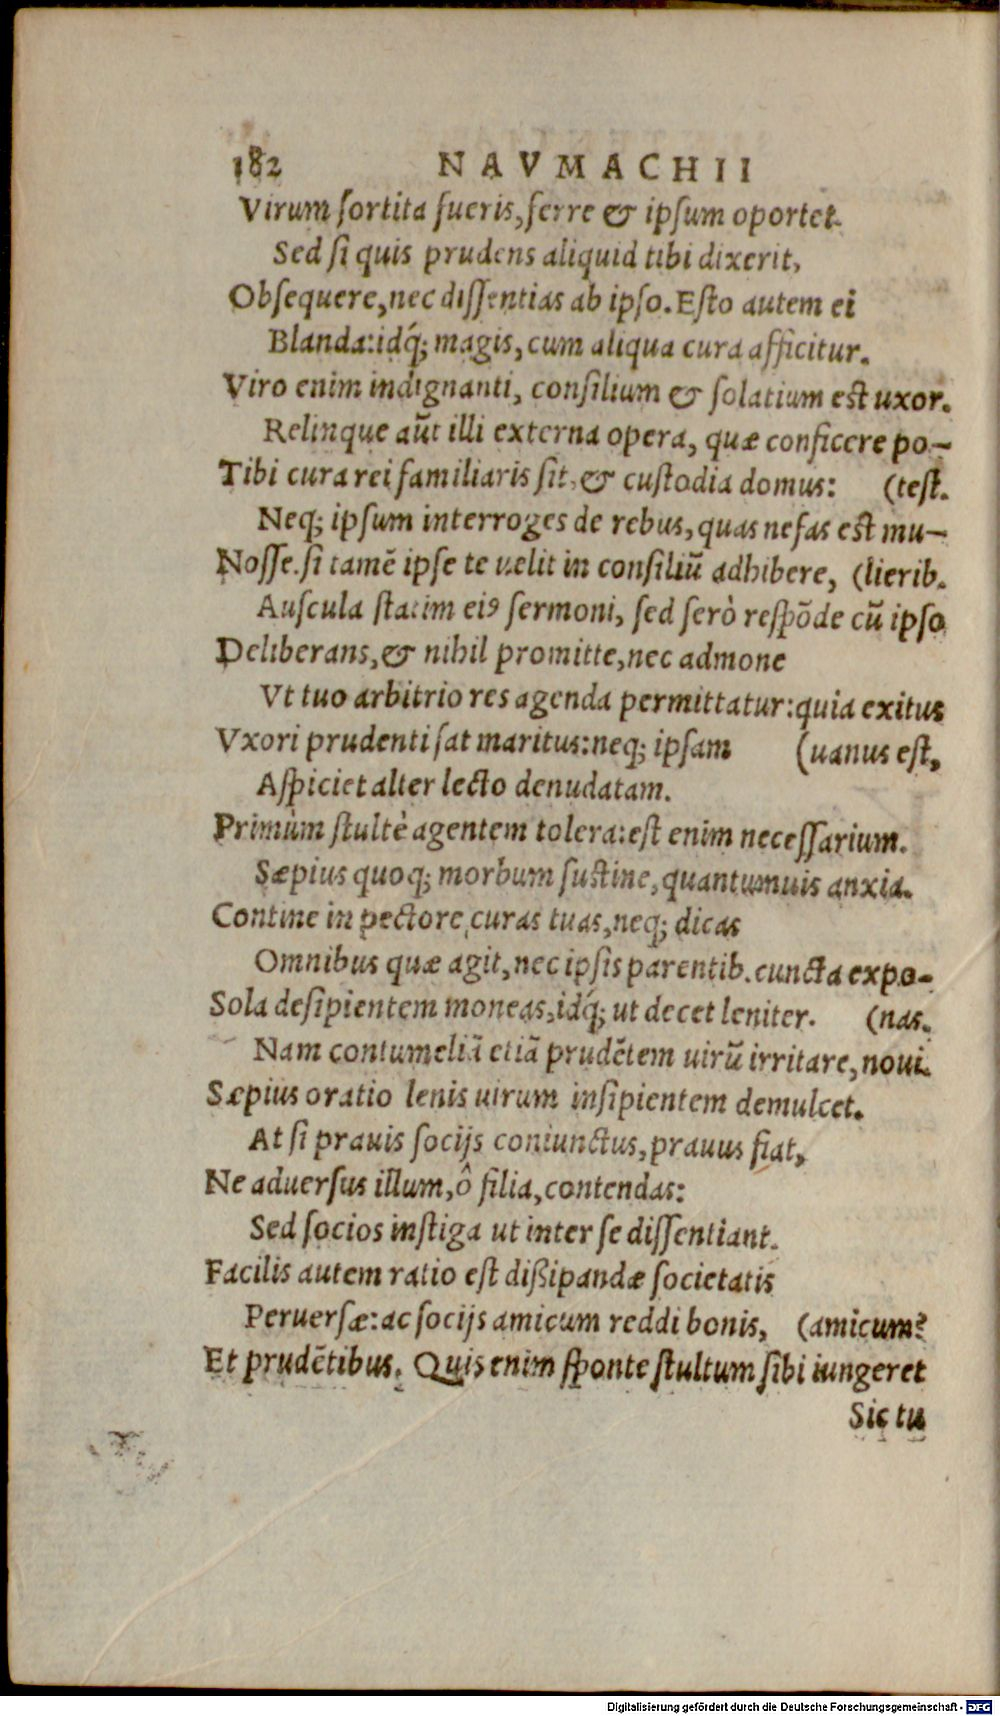 182 NAVMACHII
Virum ſortita fueris, ferre & ipſum oportet.
Sed ſi quis prudens aliquid tibi dixerit,
Obſequere, nec diſſentias ab ipſo. Eſto autem ei
Blanda: idq́; magis, cum aliqua cura afficitur.
Viro enim indignanti, conſilium & ſolatium eſt uxor.
Relinque aūt illi externa opera, quæ conficere po-
Tibi cura rei familiaris ſit, & cuſtodia domus: (teſt.
Neq; ipſum interroges de rebus, quas nefas eſt mu-
Noſſe. ſi tamē ipſe te velit in conſiliū adhibere, (lierib.
Auſcula ſtatim eiꝰ ſermoni, ſed ſerò reſpōde cū ipſo
Deliberans, & nihil promitte, nec admone
Vt tuo arbitrio res agenda permittatur: quia exitus
Vxori prudenti ſat maritus: neq; ipſam (uanus eſt,
Aſpiciet alter lecto denudatam.
Primùm ſtultè agentem tolera: eſt enim neceſſarium.
Sæpius quoq; morbum ſuſtine, quantumuis anxia.
Contine in pectore curas tuas, neq; dicas
Omnibus quæ agit, nec ipſis parentib. cuncta expo-
Sola deſipientem moneas, idq́; ut decet leniter. (nas.
Nam contumeliā etiā prudētem uirū irritare, noui.
Sæpius oratio lenis uirum inſipientem demulcet.
At ſi prauis ſocijs coniunctus, prauus fiat,
Ne aduerſus illum, ô filia, contendas:
Sed ſocios inſtiga ut inter ſe diſſentiant.
Facilis autem ratio eſt dißipandæ ſocietatis
Peruerſæ: ac ſocijs amicum reddi bonis, (amicum?
Et prudētibus. Quis enim ſponte ſtultum ſibi iungeret
Sic tu
Digitalisierung gefördert durch die Deutsche Forschungsgemeinschaft - DFG